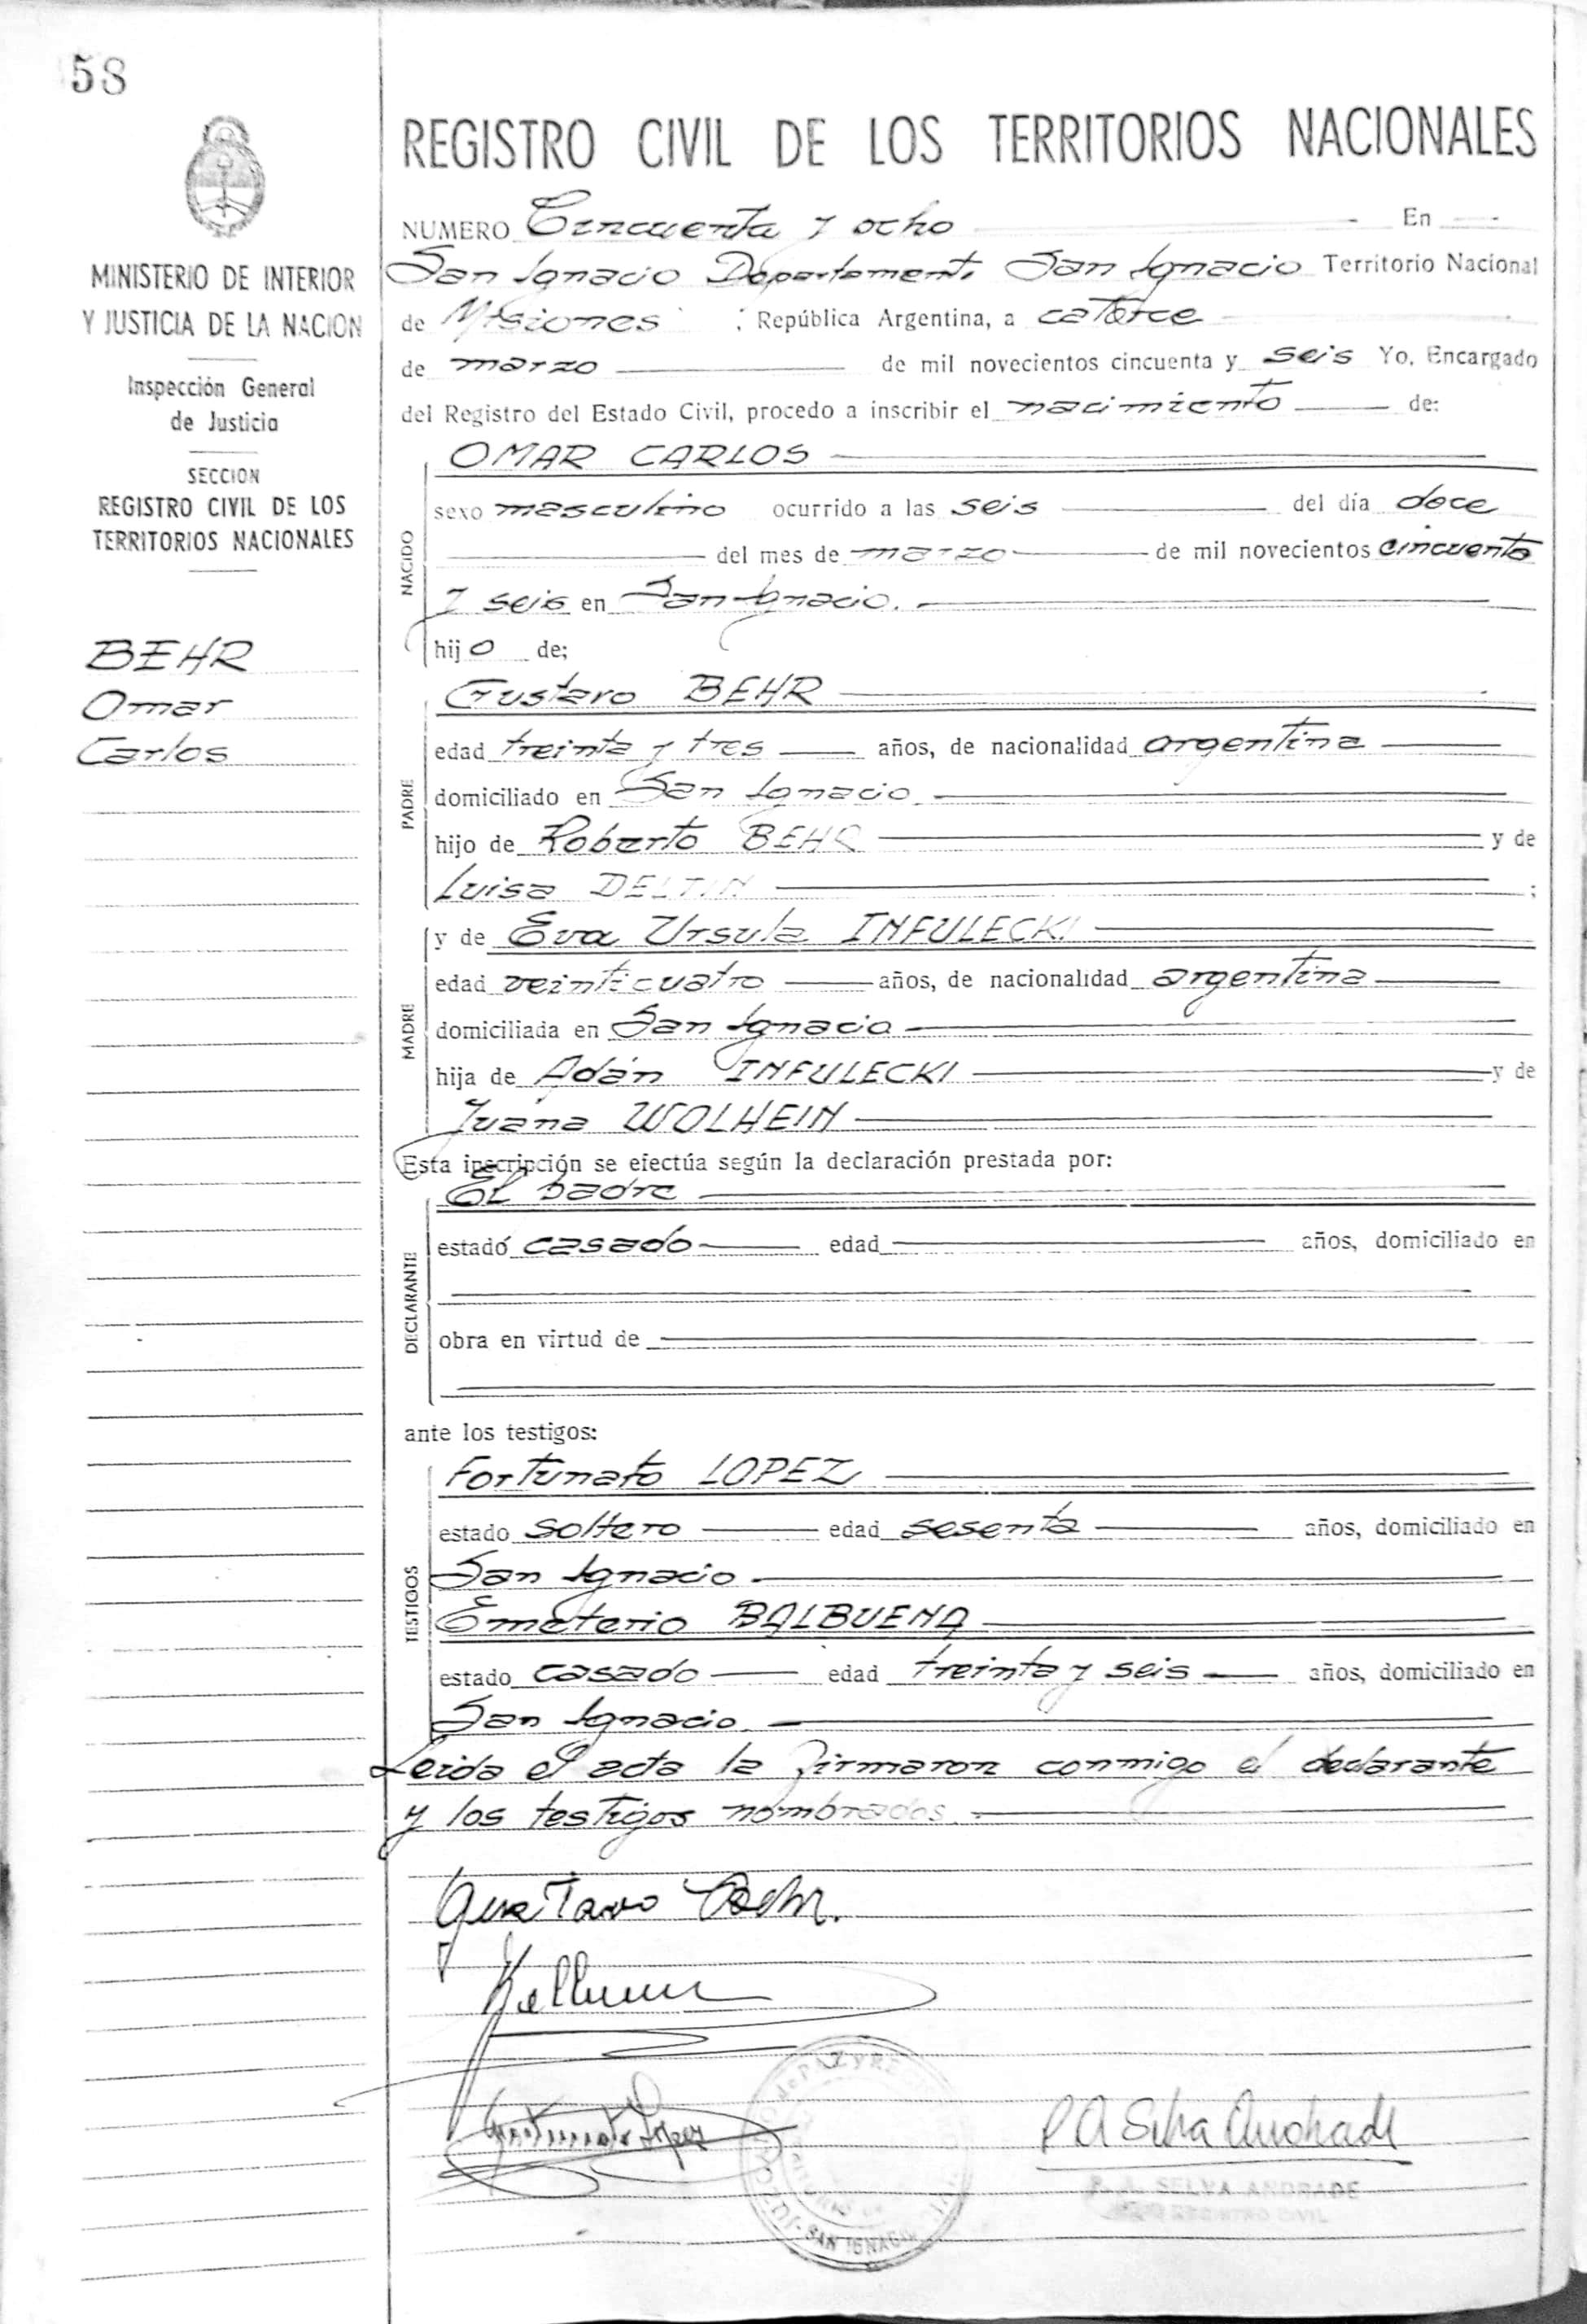 58
MINISTERIO DE INTERIOR
Y JUSTICIA DE LA NACION
Inspección General
de Justicia
SECCION
REGISTRO CIVIL DE LOS
TERRITORIOS NACIONALES
BEHR
Omar
Carlos
REGISTRO CIVIL DE LOS TERRITORIOS NACIONALES
NUMERO Cincuenta y ocho En
San Ignacio Departamento San Ignacio Territorio Nacional
de Misiones ; República Argentina, a catorce
de marzo de mil novecientos cincuenta y seis Yo, Encargado
del Registro del Estado Civil, procedo a inscribir el nacimiento de:
NACIDO
OMAR CARLOS
sexo masculino ocurrido a las seis del día doce
del mes de marzo de mil novecientos cincuenta
y seis en San Ignacio.
hijo de;
PADRE
Gustavo BEHR
edad treinta y tres años, de nacionalidad argentina
domiciliado en San Ignacio
hijo de Roberto BEHR y de
Luisa ;
MADRE
y de Eva Ursula INFULECKI
edad veinticuatro años, de nacionalidad argentina
domiciliada en San Ignacio
hija de Adán INFULECKI y de
Juana WOLHEIN
Esta inscripción se efectúa según la declaración prestada por:
DECLARANTE
El padre
estado casado edad años, domiciliado en
obra en virtud de
ante los testigos:
TESTIGOS
Fortunato LOPEZ
estado soltero edad sesenta años, domiciliado en
San Ignacio
Emeterio BALBUENA
estado casado edad treinta y seis años, domiciliado en
San Ignacio
Leida el acta la firmaron conmigo el declarante
y los testigos nombrados.
Gustavo Behr.
Lopez
P A Selva Andrade
P. A. SELVA ANDRADE
REGISTRO CIVIL
SAN IGNACIO